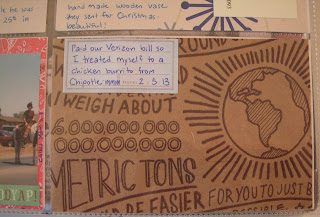 le he was
25th in
hand made wooden vase
they sent for Christmas.
beautiful!
Paid our Verizon bill so
I treated myself to a
chicken burrito from
Chipotle mmm 2.5.13
ROUND
U WEIGH ABOUT
6,000,000,000
000,000,000,000
METRIC TONS
BE EASIER FOR YOU TO JUST B